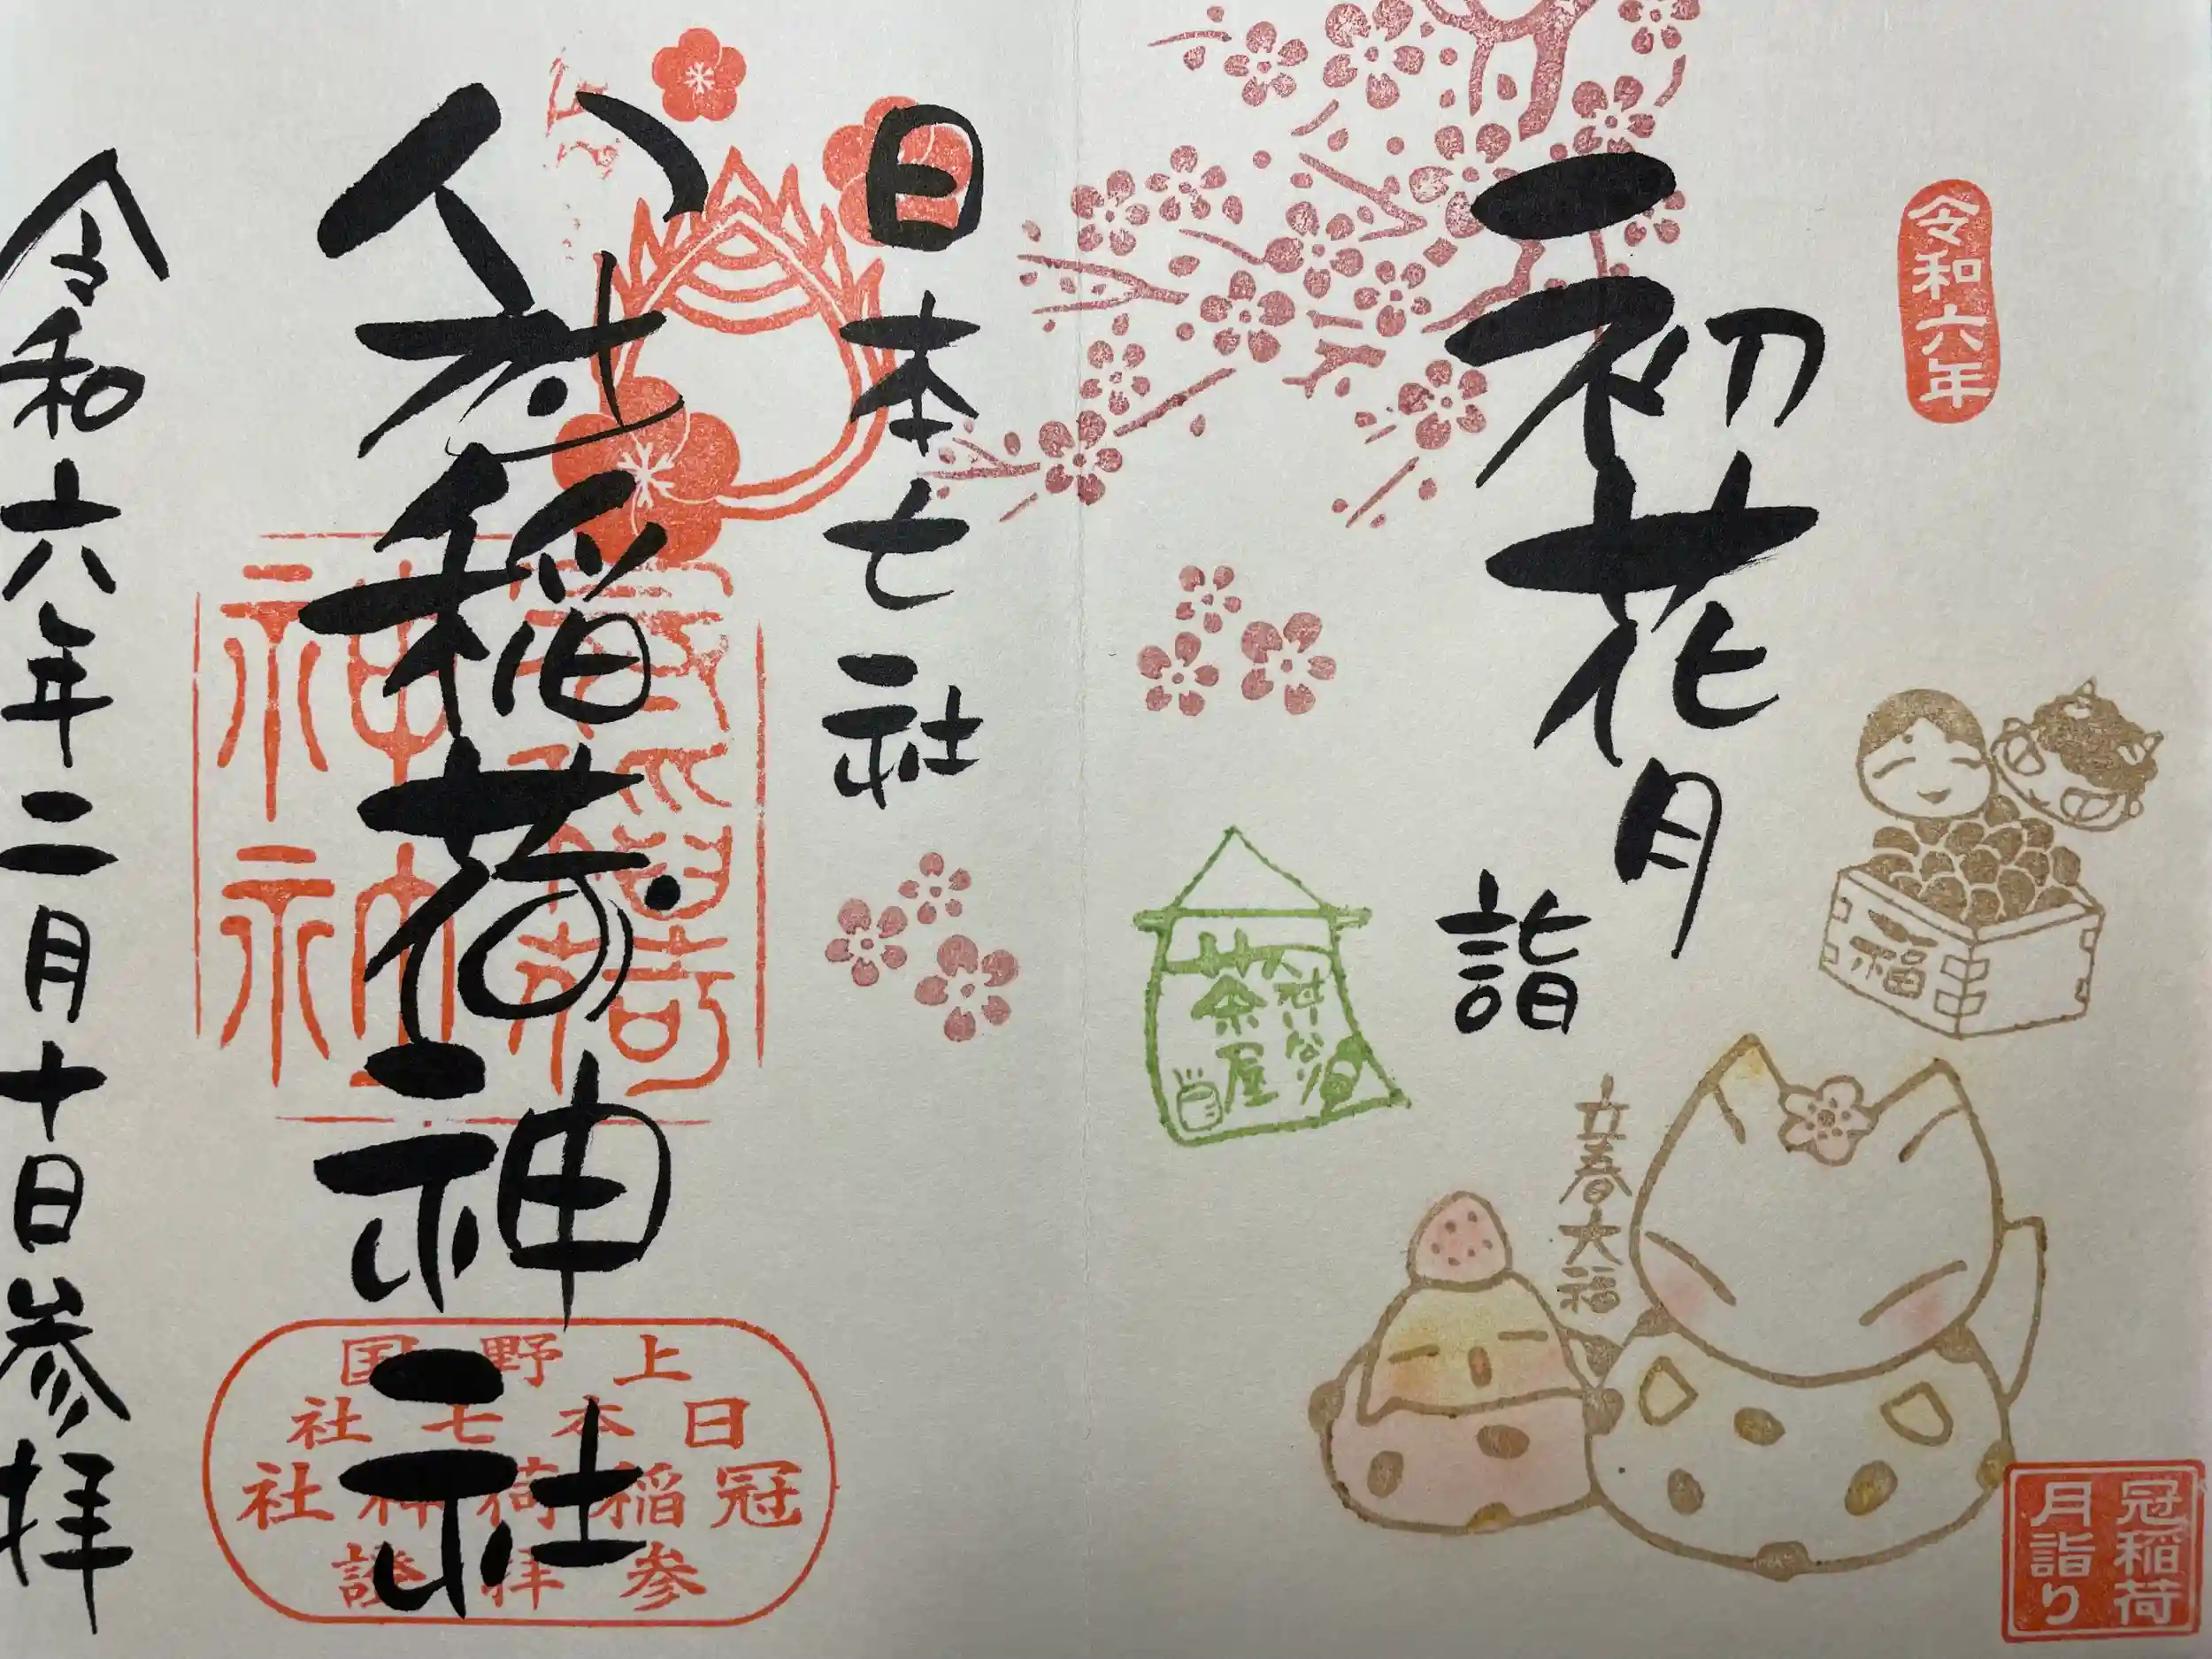 令和六年
初花月
詣
福
立春大福
冠稲荷
月詣り
茶屋
日本七社
冠稲荷神社
上野国
日本七社
冠稲荷神社
参拝證
令和六年二月十日参拝